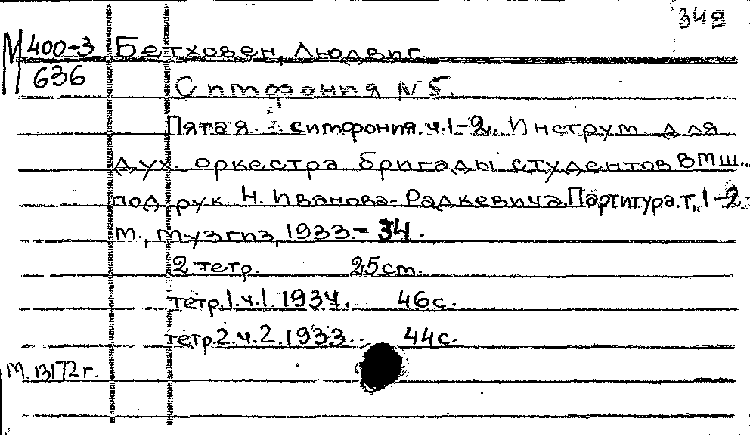 349
М 400-3 Бетховен, Людвиг.
636
Симфония N 5.
Пятая симфония. ч. 1-2. Инструм для
дух. оркестра бригады студентов ВМШ..
под рук Н. Иванова-Радкевича. Партитура. т. 1-2.
м., музгиз, 1933-34.
2 тетр. 25 cm.
тетр. 1. ч. 1. 1934. 46 с.
тетр. 2. ч. 2. 1933. 44 с.
М. 13172 г.